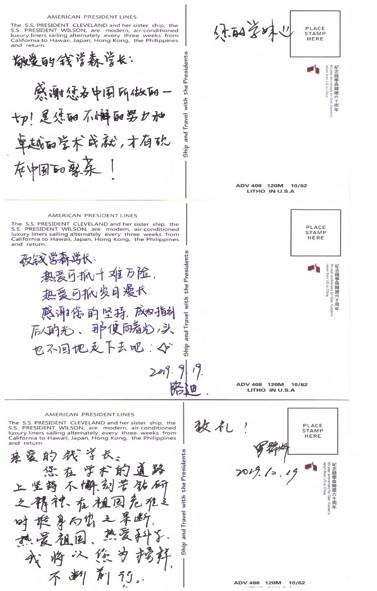 AMERICAN PRESIDENT LINES
The S.S. PRESIDENT CLEVELAND and her sister ship, the
S.S. PRESIDENT WILSON, are modern, air-conditioned
luxury liners sailing alternately every three weeks from
California to Hawaii, Japan, Hong Kong, the Philippines
and return.
敬爱的钱学森学长:
感谢您为中国所做的一
切!是您的不懈的努力和
卓越的学术成就,才有现
在中国的繁荣!
Ship and Travel with the Presidents
您的学妹
PLACE
STAMP
HERE
ADV 408 120M 10/62
LITHO IN U.S.A
AMERICAN PRESIDENT LINES
The S.S. PRESIDENT CLEVELAND and her sister ship, the
S.S. PRESIDENT WILSON, are modern, air-conditioned
luxury liners sailing alternately every three weeks from
California to Hawaii, Japan, Hong Kong, the Philippines
and return.
致钱学森学长:
热爱可抵千难万险,
热爱可抵岁月漫长
感谢您的坚持,成为指引
后人的光、那便向着光,头
也不回地走下去吧:
2019.9.19.
路迪
Ship and Travel with the Presidents
PLACE
STAMP
HERE
ADV 408 120M 10/62
LITHO IN U.S.A
AMERICAN PRESIDENT LINES
The S.S. PRESIDENT CLEVELAND and her sister ship, the
S.S. PRESIDENT WILSON, are modern, air-conditioned
luxury liners sailing alternately every three weeks from
California to Hawaii, Japan, Hong Kong, the Philippines
and return
亲爱的钱学长:
您在学术的道路
上坚持不懈刻苦钻研
之精神、在祖国危难之
时挺身而出之果断.
热爱祖国、热爱科学.
我将以您为榜样,
不断前行。
Ship and Travel with the Presidents
致礼!
2019.10.19
PLACE
STAMP
HERE
ADV 408 120M 10/62
LITHO IN U.S.A